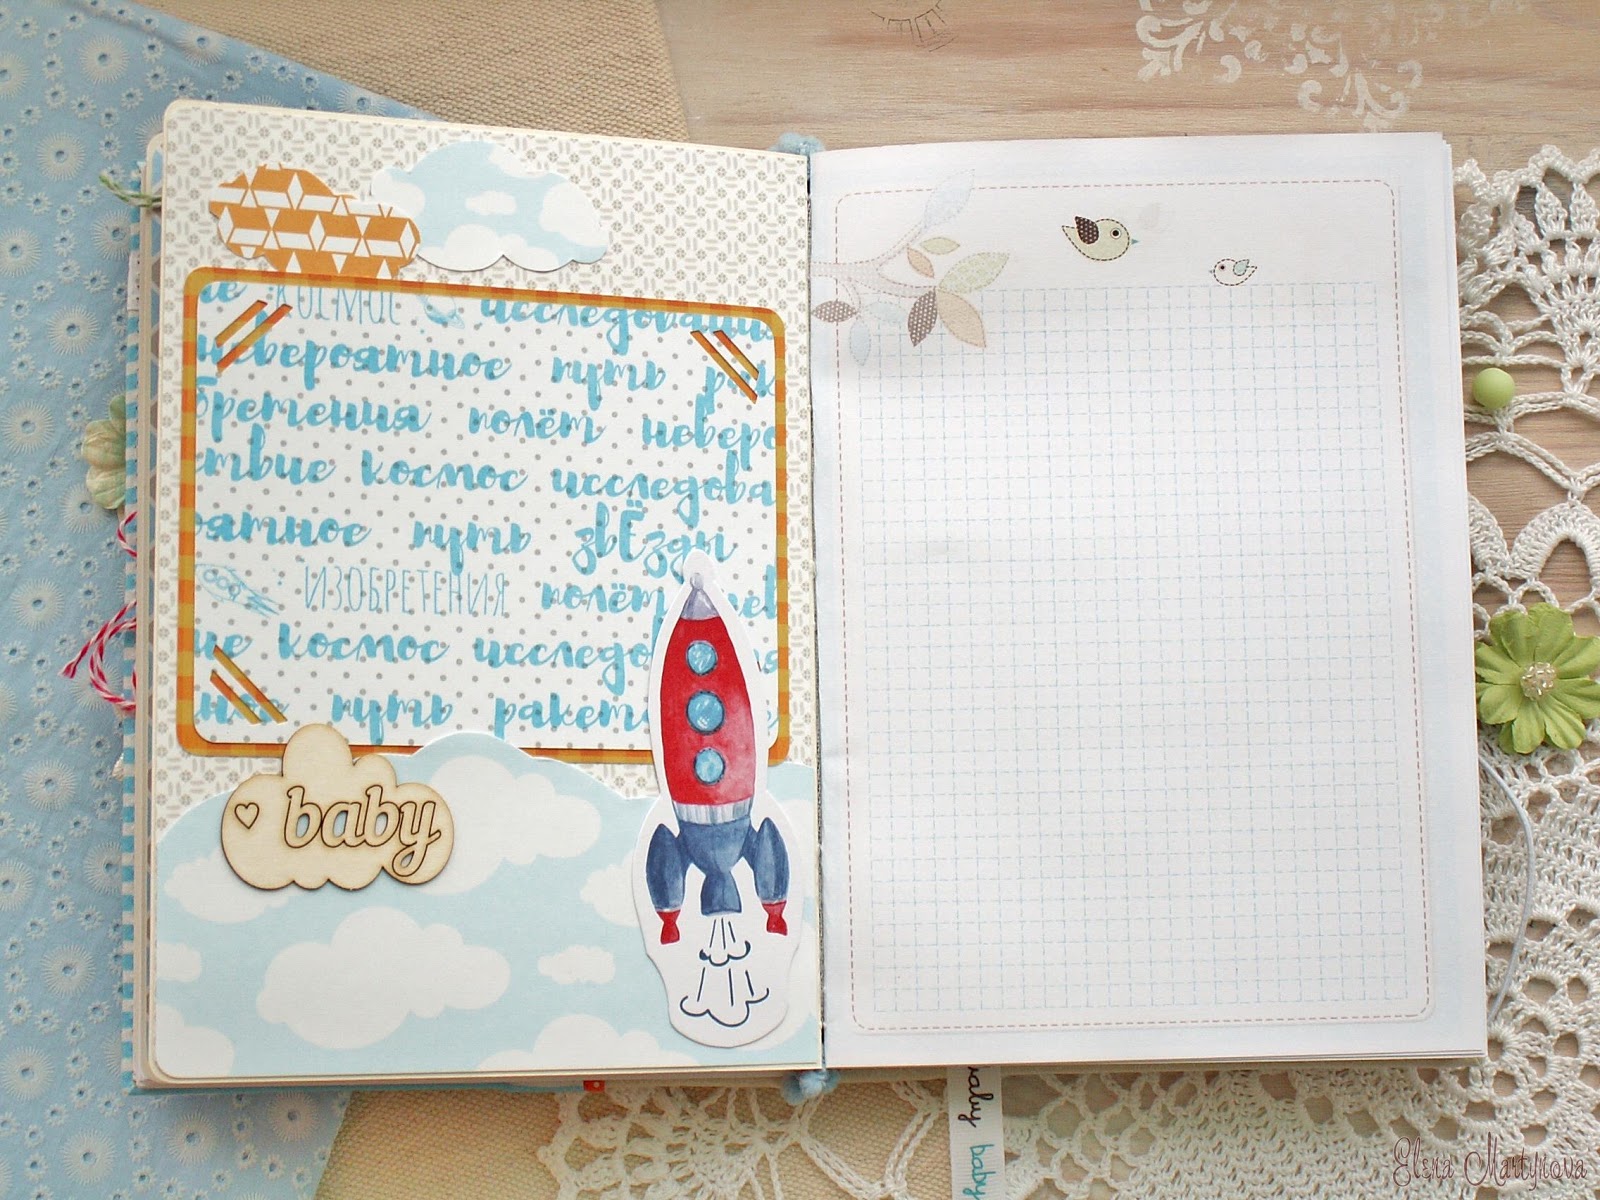 ие космос исследования
невероятное путь рак
бретения полёт неверо
ствие космос исследова
оятное путь звёзды
ИЗОБРЕТЕНИЯ полёт нев
ие космос исследов я
ное путь ракет е
baby
baby baby
Elena Martynova